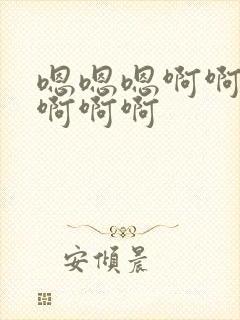 嗯嗯嗯啊啊
啊啊啊
安傾晨